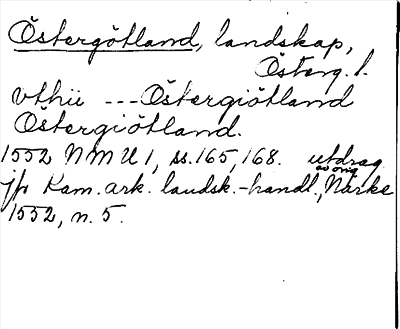 Östergötland, landskap,
Österg. l.
vthii --- Östergiötland
Östergiötland.
1552 NMU 1, ss. 165, 168. utdrag
av orig
jfr Kam. ark. landsk.-handl., Närke
1552, n. 5.